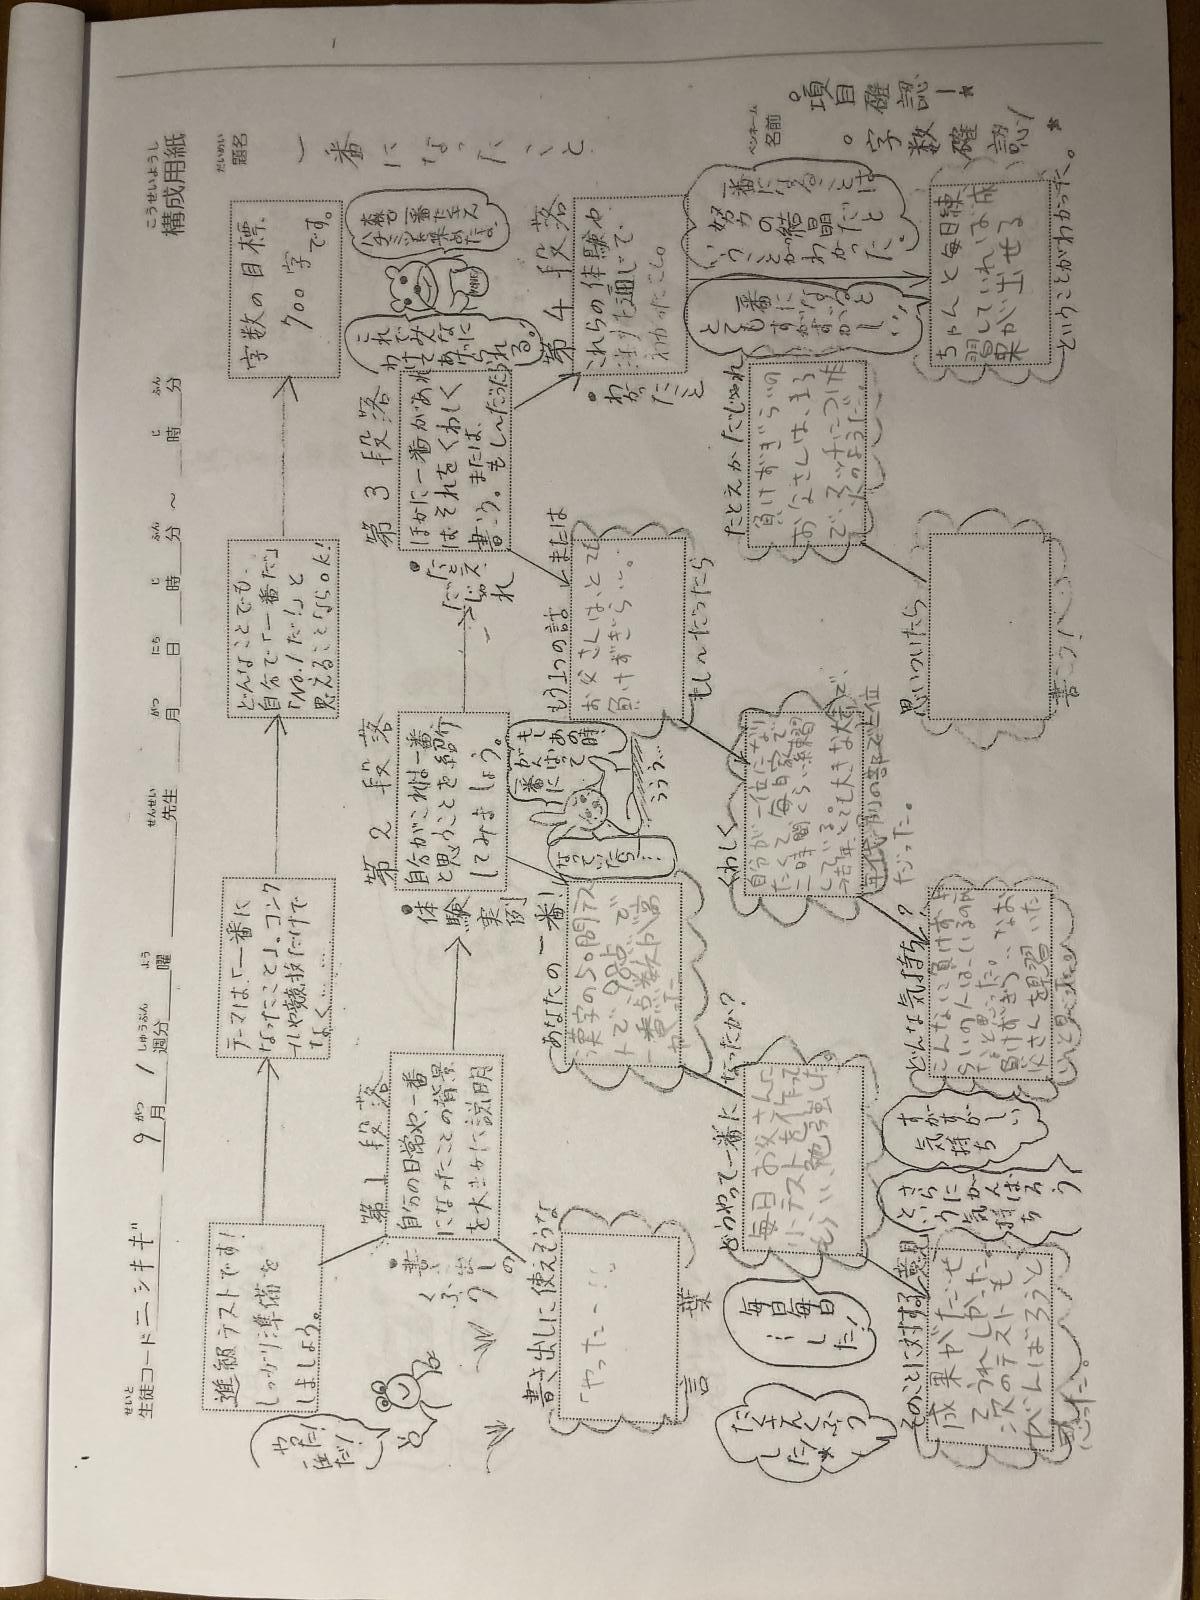 構成用紙
こうせいようし
生徒コード ニシキギ 9月 1週分 曜 先生 月 日 時 分 ～ 時 分
せいと がつ しゅうぶん よう せんせい がつ にち じ ふん じ ふん
題名 一番になったこと
だいめい
ペンネーム
名前
。項目確認！
。字数確認！
進級テストです！
しっかり準備を
しましょう。
テーマは、「一番に
なったこと」。コンク
ールや競技だけで
なく……
どんなことでも、
自分で「一番だ」
「No.1だ！」と
思えることならOK！
字数の目標、
700字です。
第1段落
自分の日常や、一番
になったことの背景
を大まかに説明
・書き出しの
くふう
書き出しに使えそうな
言葉
「やったー！！」
どうやって一番になったか？
毎日お父さんに
小テストを作って
もらい、勉強した。
毎日毎日
…し
た！
たくさん
くふう
した！
そのことに対する意見
成果がだせ
てうれしかった。
次のテストも
がんばろうと
思った。
すがすがしい
気持ち
さらに
がんばろう
という気持ち
第2段落
自分がこれは一番
と思うことを紹介
してみましょう。
・体験実例
あなたの一番！
漢字の50問テス
トで、98点で
一番点数が高
かった
もしあの時
がんばって
一番に
なっていたら…
ううう…
くわしく
自分が一位になり
たくて、毎日家で
二時間くらい練習
している。
去年、とても大きな大会で、
年代別の部で七位
だった。
どんな気持ち？
こんなに負けずぎ
らいの人はいるの
だと思った。
負けずぎらいなお
父さんを見習いた
いと思った。
第3段落
ほかに一番があれ
ばそれをくわしく
書こう。または、
もし～だったら
・たとえ
だじゃれ
もう1つの話 または
もし～だったら
お父さんは、とても
負けずぎらい。
たとえかだじゃれ
負けずぎらいの
お父さんは、まる
で、マッチにつけた
火のようだ。
思いついたら
書こう！
第4段落
これらの体験や
法則を通じて、
わかったこと。
・わかったこと
一番になることは
努力の結晶だと
いうことがわかった。
一番になると
とてもすがすがしい
ちゃんと毎日練
習していれば成
果が出せる
ということがわかった。